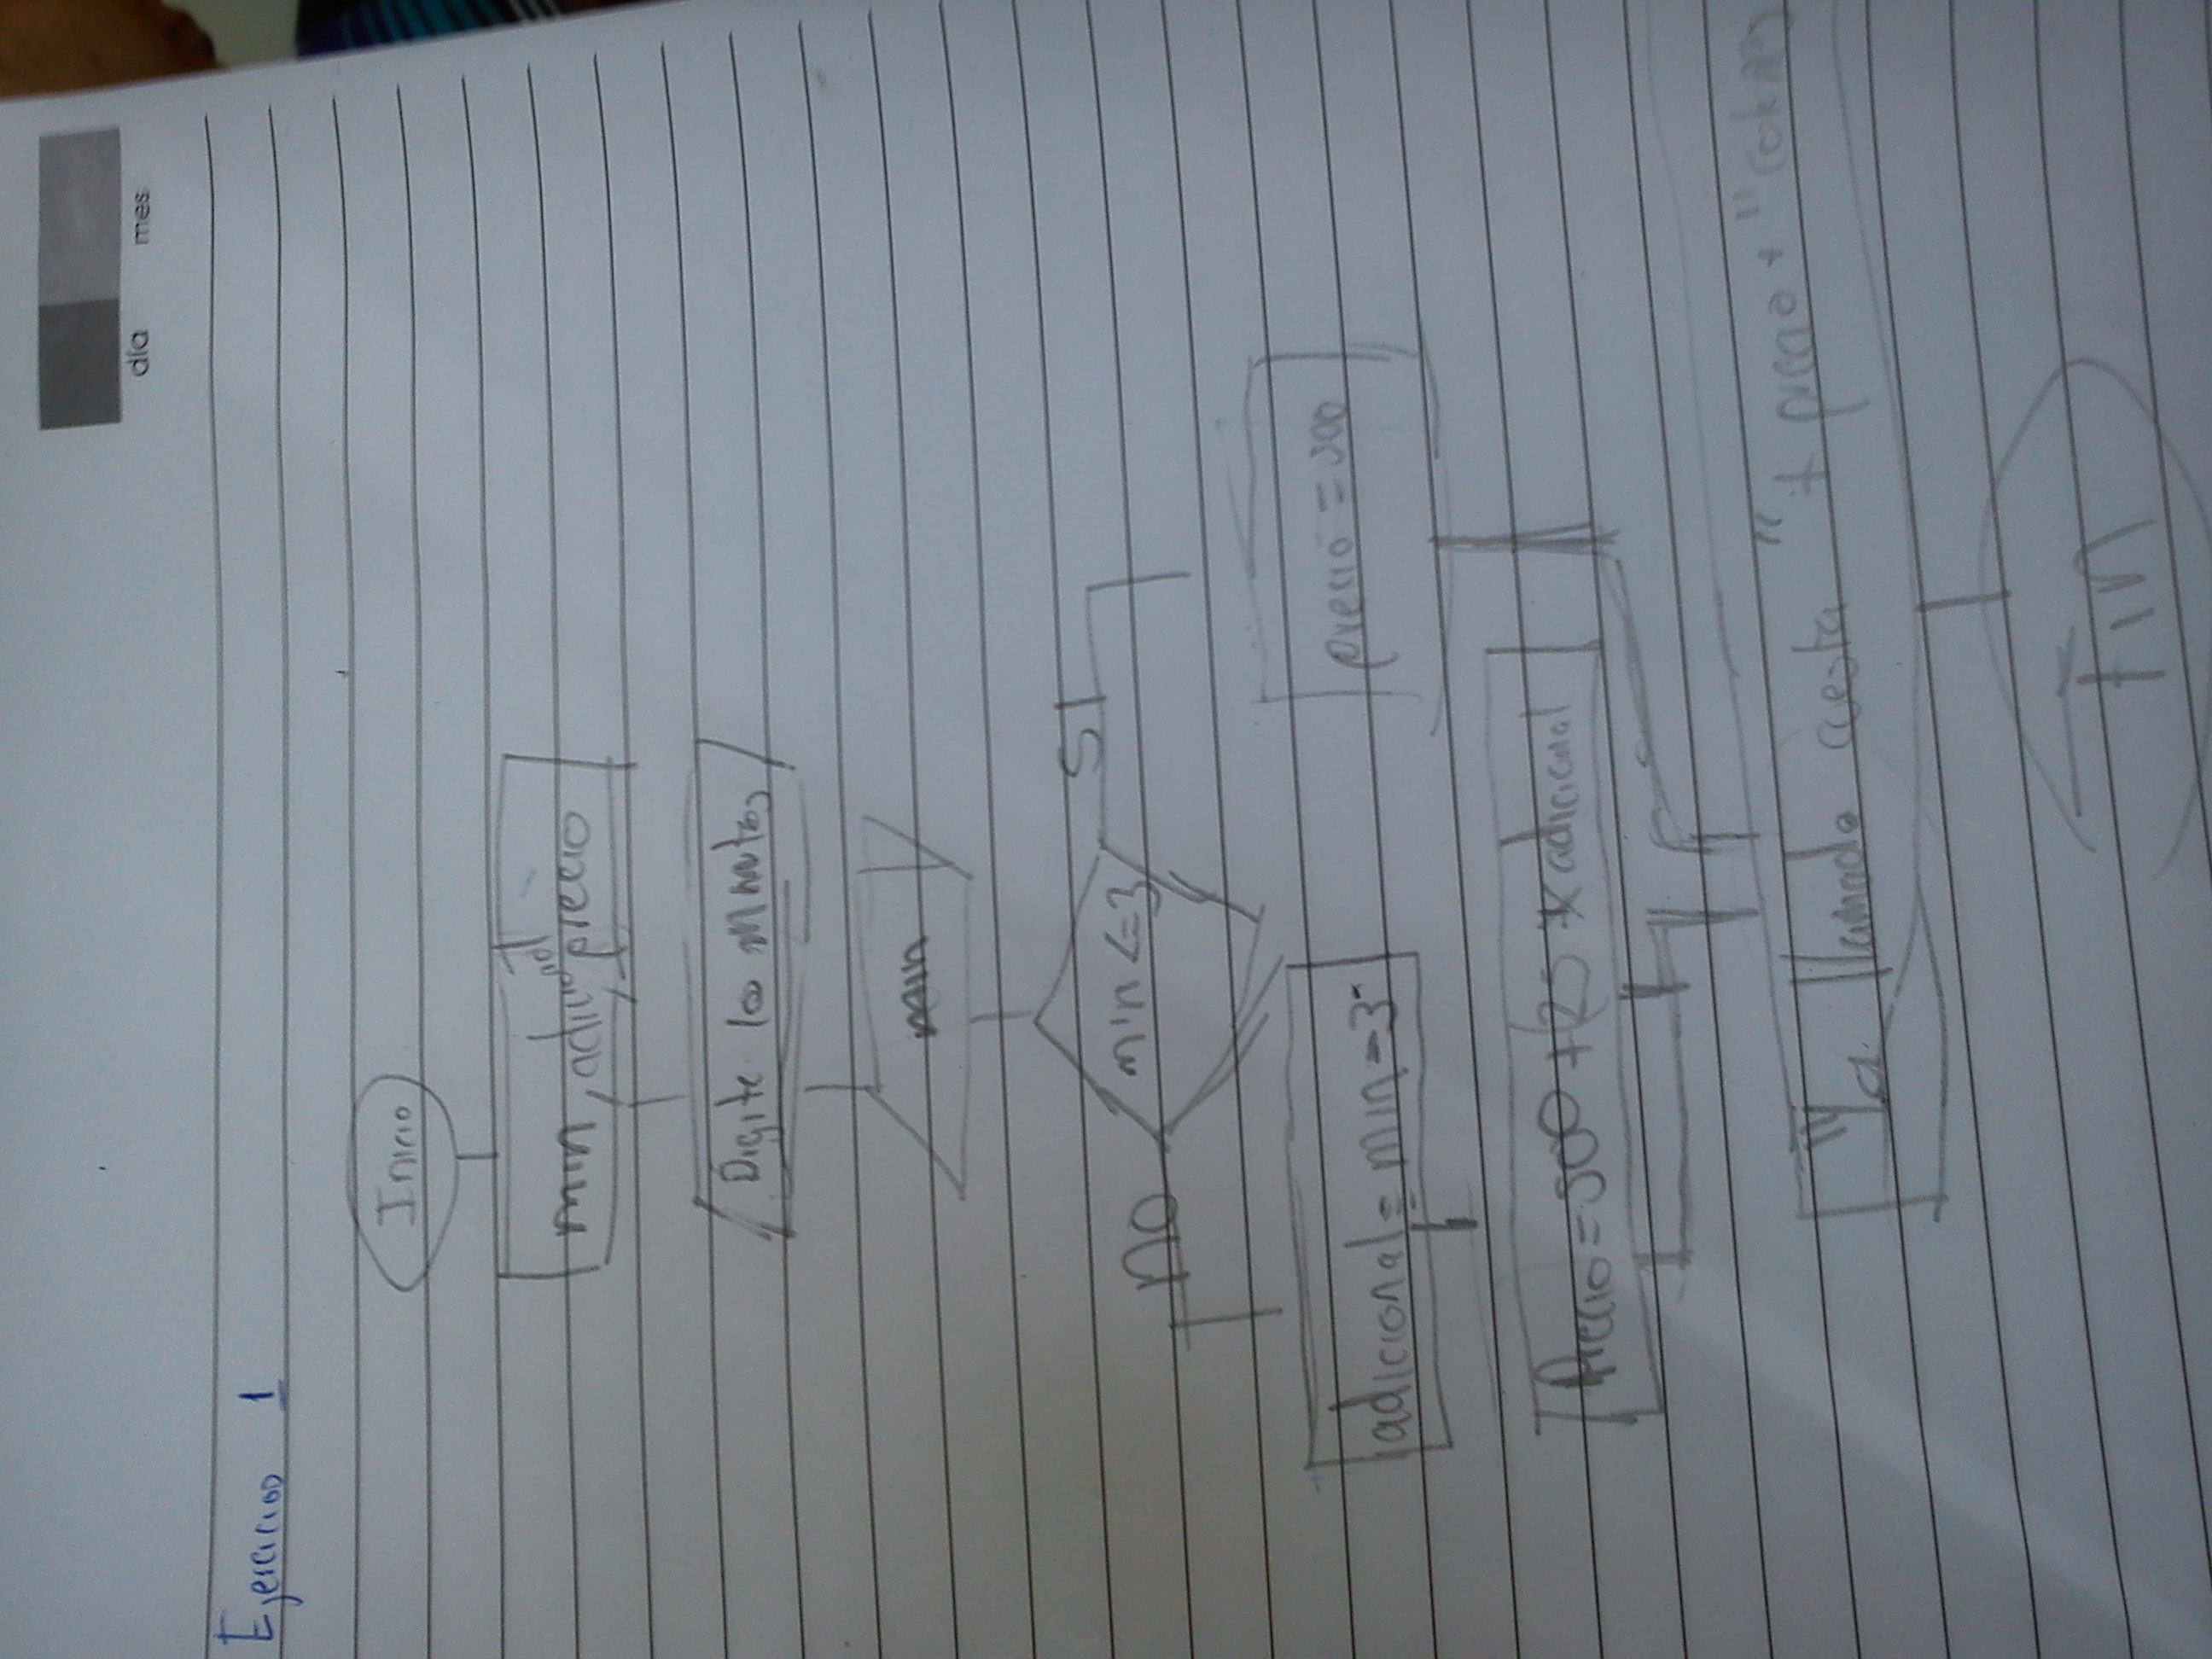 día mes
Ejercicios 1
Inicio
min, adicional, precio
Digite los minutos
min
min <= 3
SI
no
adicional = min - 3
precio = 300
Precio = 300 + (25 * adicional
"La llamada cuesta " + precio + "
Fin